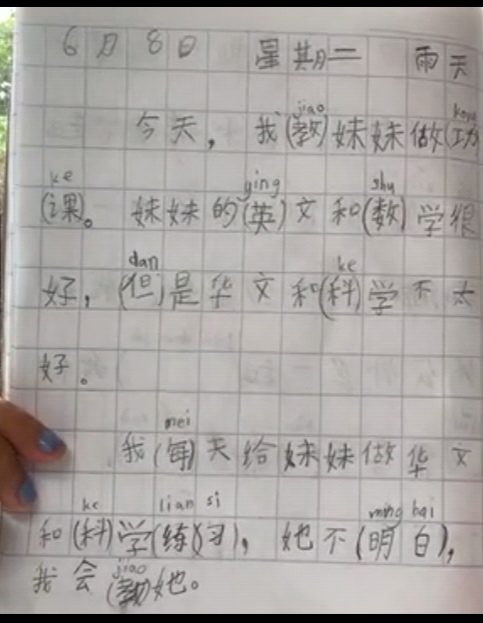 6月8日 星期二 雨天
jiao kong
今天，我(教)妹妹做(功
ke ying shu
课)。妹妹的(英)文和(数)学很
dan ke
好，(但)是华文和(科)学不太
好。
mei
我(每)天给妹妹做华文
ke lian si ming bai
和(科)学(练习)，她不(明白)，
jiao
我会(教)她。